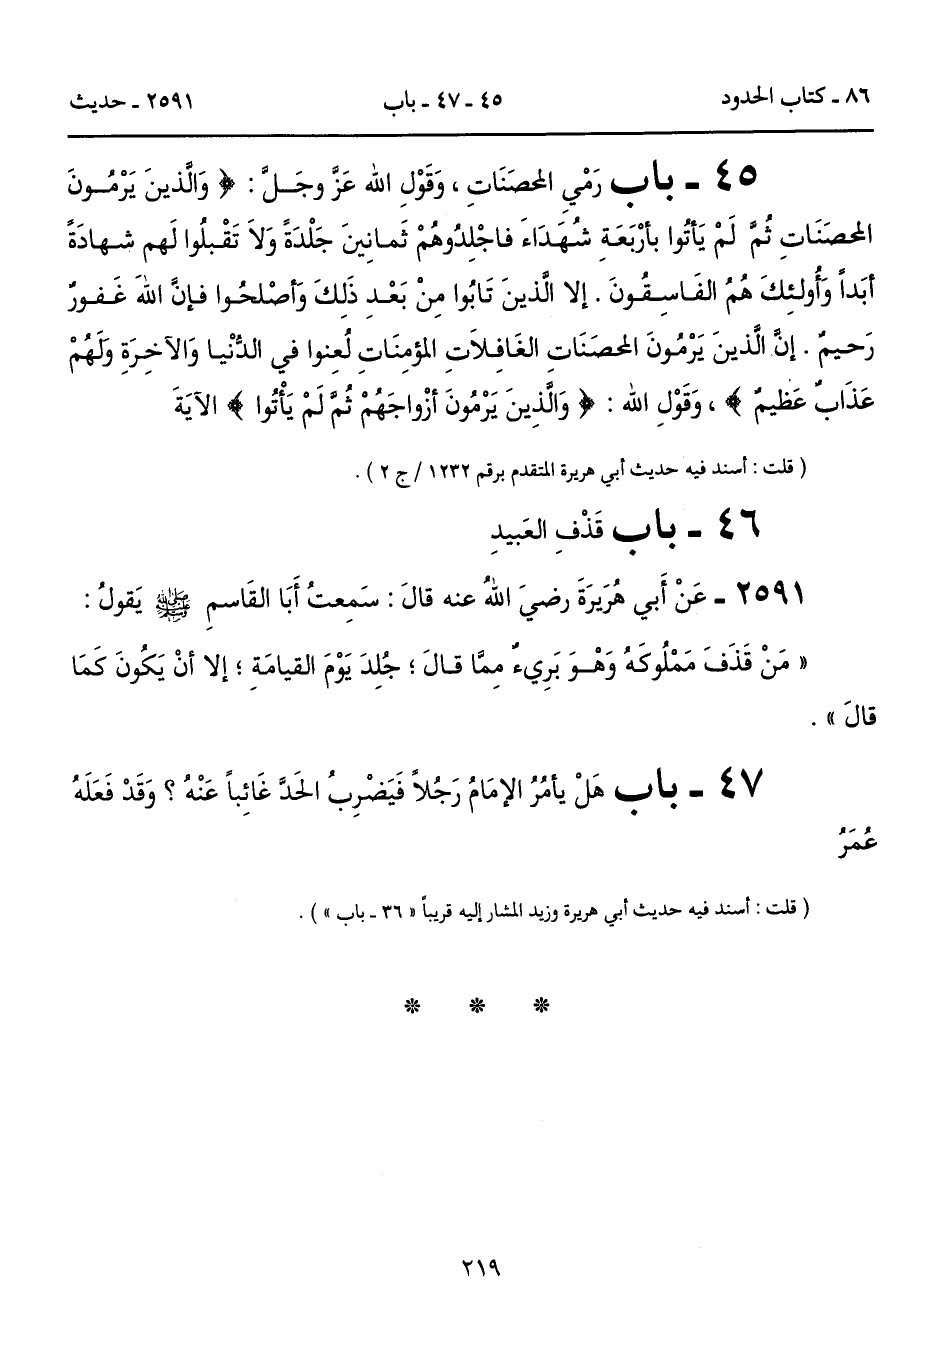 ٨٦ ـ كتاب الحدود ٤٥ ـ ٤٧ ـ باب ٢٥٩١ ـ حديث
٤٥ ـ باب رَمْيِ المحصَنَاتِ ، وَقَوْلِ الله عَزَّ وجَـلَّ : ﴿ وَالَّذينَ يَرْمُـونَ
المحصَنَاتِ ثُمَّ لَمْ يَأتُوا بأرْبَعَةِ شُهَدَاءَ فَاجْلِدُوهُمْ ثَمانينَ جَلْدَةً وَلاَ تَقْبلُوا لَهم شهادَةً
أبَداً وَأُولئِكَ هُمُ الفَاسِقُونَ . إلا الَّذينَ تَابُوا مِنْ بَعْدِ ذَلِكَ وَأصْلحُوا فإنَّ اللهَ غَفورٌ
رَحيمٌ . إنَّ الَّذينَ يَرْمُونَ المحصَنَاتِ الغَافِلاَتِ المؤمنَاتِ لُعِنوا في الدُّنْيا وَالآخِرَةِ وَلَهُمْ
عَذَابٌ عَظيمٌ ﴾ ، وَقَوْلِ الله : ﴿ وَالَّذِينَ يَرْمُونَ أزْواجَهُمْ ثُمَّ لَمْ يَأْتُوا ﴾ الآيَةَ
( قلت : أسند فيه حديث أبي هريرة المتقدم برقم ١٢٣٢ / ج ٢ ) .
٤٦ ـ باب قَذْفِ العَبيدِ
٢٥٩١ ـ عَنْ أَبي هُرَيرَةَ رضيَ اللهُ عنه قالَ : سَمِعتُ أَبَا القَاسمِ ﷺ يَقولُ :
« مَنْ قَذَفَ مَمْلُوكَهُ وَهْـوَ بَرِيءٌ مِمَّا قـالَ ؛ جُلِدَ يَوْمَ القيامَةِ ؛ إلا أنْ يَكُونَ كَمَا
قالَ » .
٤٧ ـ باب هَلْ يأمُرُ الإمَامُ رَجُلاً فَيَضْرِبُ الحَدَّ غَائِباً عَنْهُ ؟ وَقَدْ فَعَلَهُ
عُمَرُ
( قلت : أسند فيه حديث أبي هريرة وزيد المشار إليه قريباً « ٣٦ ـ باب » ) .
٢١٩